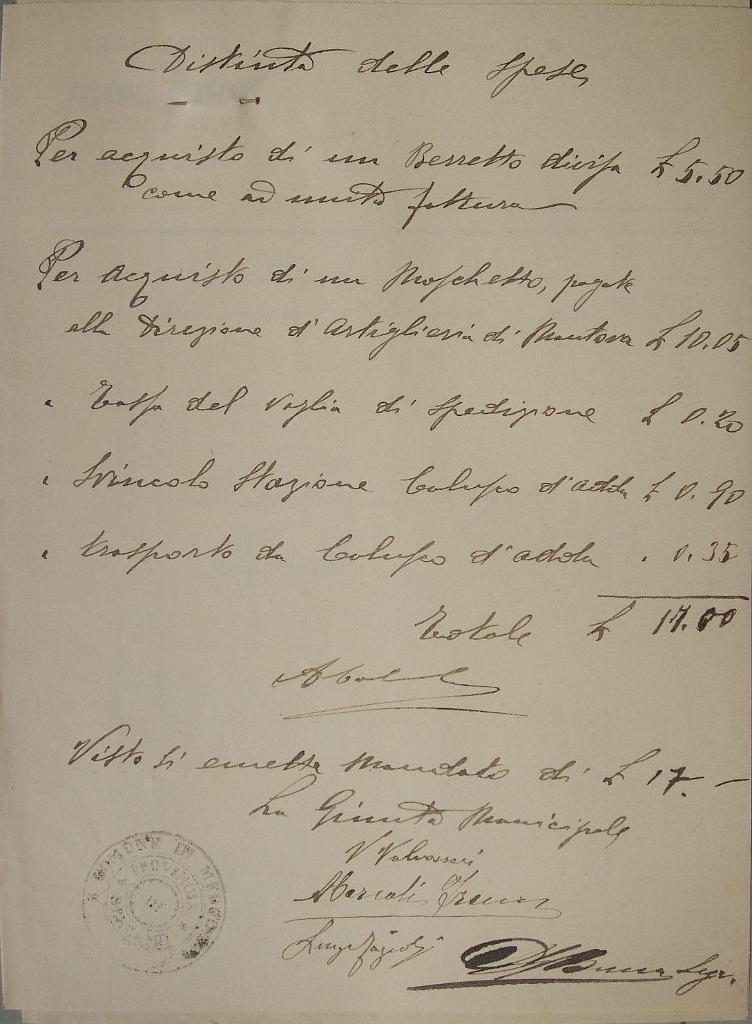 Distinta delle spese
Per acquisto di un Berretto divisa £ 5.50
come ad unita fattura
Per acquisto di un Moschetto, pagate
alla Direzione d'Artiglieria di Mantova £ 10.05
" Tassa del vaglia di spedizione £ 0.20
" Svincolo Stazione Calusco d'adda £ 0.90
" trasporto da Calusco d'adda " 0.35
Totale £ 17.00
Visto si emetta mandato di £ 17.-
La Giunta Municipale
V Valvassori
Luigi
Segr.
IN
PROVINCIA